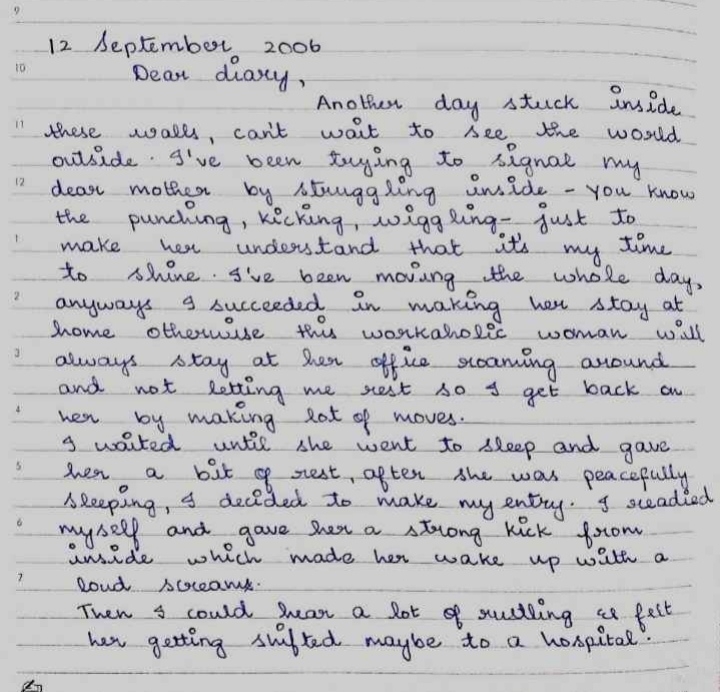 9
12 September 2006
10
Dear diary,
Another day stuck inside
11
these walls, can't wait to see the world
outside. I've been trying to signal my
12
dear mother by struggling inside - you know
the punching, kicking, wiggling- just to
1
make her understand that it's my time
to shine. I've been moving the whole day,
2
anyways I succeeded in making her stay at
home otherwise this workaholic woman will
3
always stay at her office roaming around
and not letting me rest so I get back on
4
her by making lot of moves.
I waited until she went to sleep and gave
5
her a bit of rest, after she was peacefully
sleeping, I decided to make my entry. I readied
6
myself and gave her a strong kick from
inside which made her wake up with a
7
loud screams.
Then I could hear a lot of rustling & felt
her getting shifted maybe to a hospital.